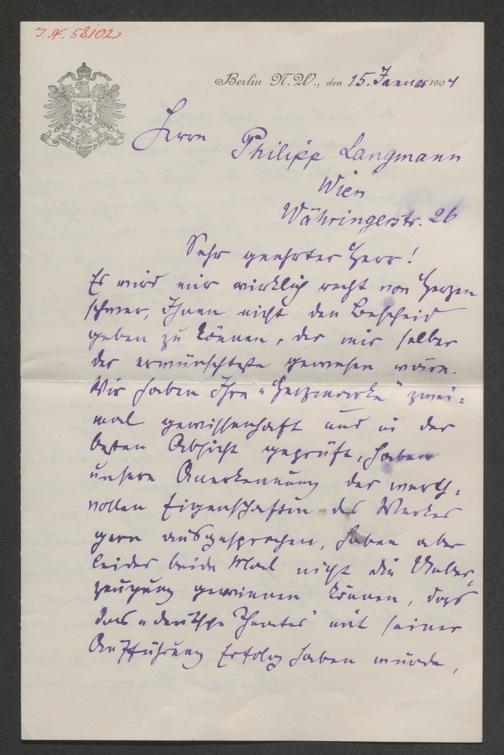 I.N. 58102
Berlin N.W., den 15. Januar 1904
Herrn Philipp Langmann
Wien
Währingerstr. 26
Sehr geehrter Herr!
Es wird mir wirklich recht von Herzen
schwer, Ihnen nicht den Bescheid
geben zu können, der mir selber
der erwünschteste gewesen wäre.
Wir haben Ihre "Herzmarke" zwei=
mal gewissenhaft und in der
besten Absicht geprüft, haben
unsere Anerkennung der werth=
vollen Eigenschaften des Werkes
gern ausgesprochen, haben aber
leider beide Mal nicht die Ueber=
zeugung gewinnen können, dass
das "deutsche Theater" mit seiner
Aufführung Erfolg haben würde,